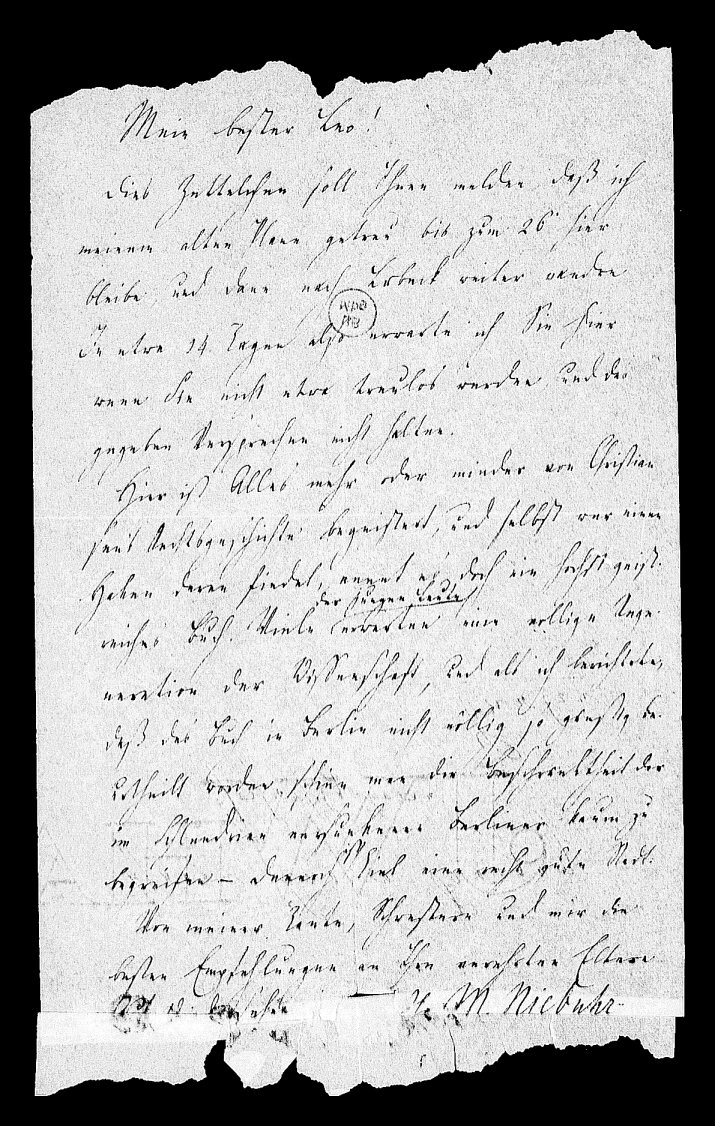 Mein bester Leo!
Dies Zettelchen soll Ihnen melden, daß ich
meinem alten Plane getreu bis zum 26. hier
bleibe und dann nach Lübeck weiter wandre
In etwa 14 Tagen also erwarte ich Sie hier
wenn Sie nicht etwa treulos werden und das
gegeben Versprechen nicht halten.
Hier ist Alles mehr oder minder von Christian
sens Rechtsgeschichte begeistert, und selbst wer einen
Haken daran findet, nennt es doch ein höchst geist-
reiches Buch. Viele der jungen Leute erwarten eine völlige Rege-
neration der Wissenschaft, und als ich berichtete,
daß das Buch in Berlin nicht völlig so günstig be-
urtheilt worden, schien man die Beschränktheit der
im Schlendrian versunkenen Berliner kaum zu
begreifen – dennoch ist Kiel eine recht gute Stadt.
Von meiner Tante, Schwestern und mir die
besten Empfehlungen an Ihre verehrten Eltern
M. Niebuhr